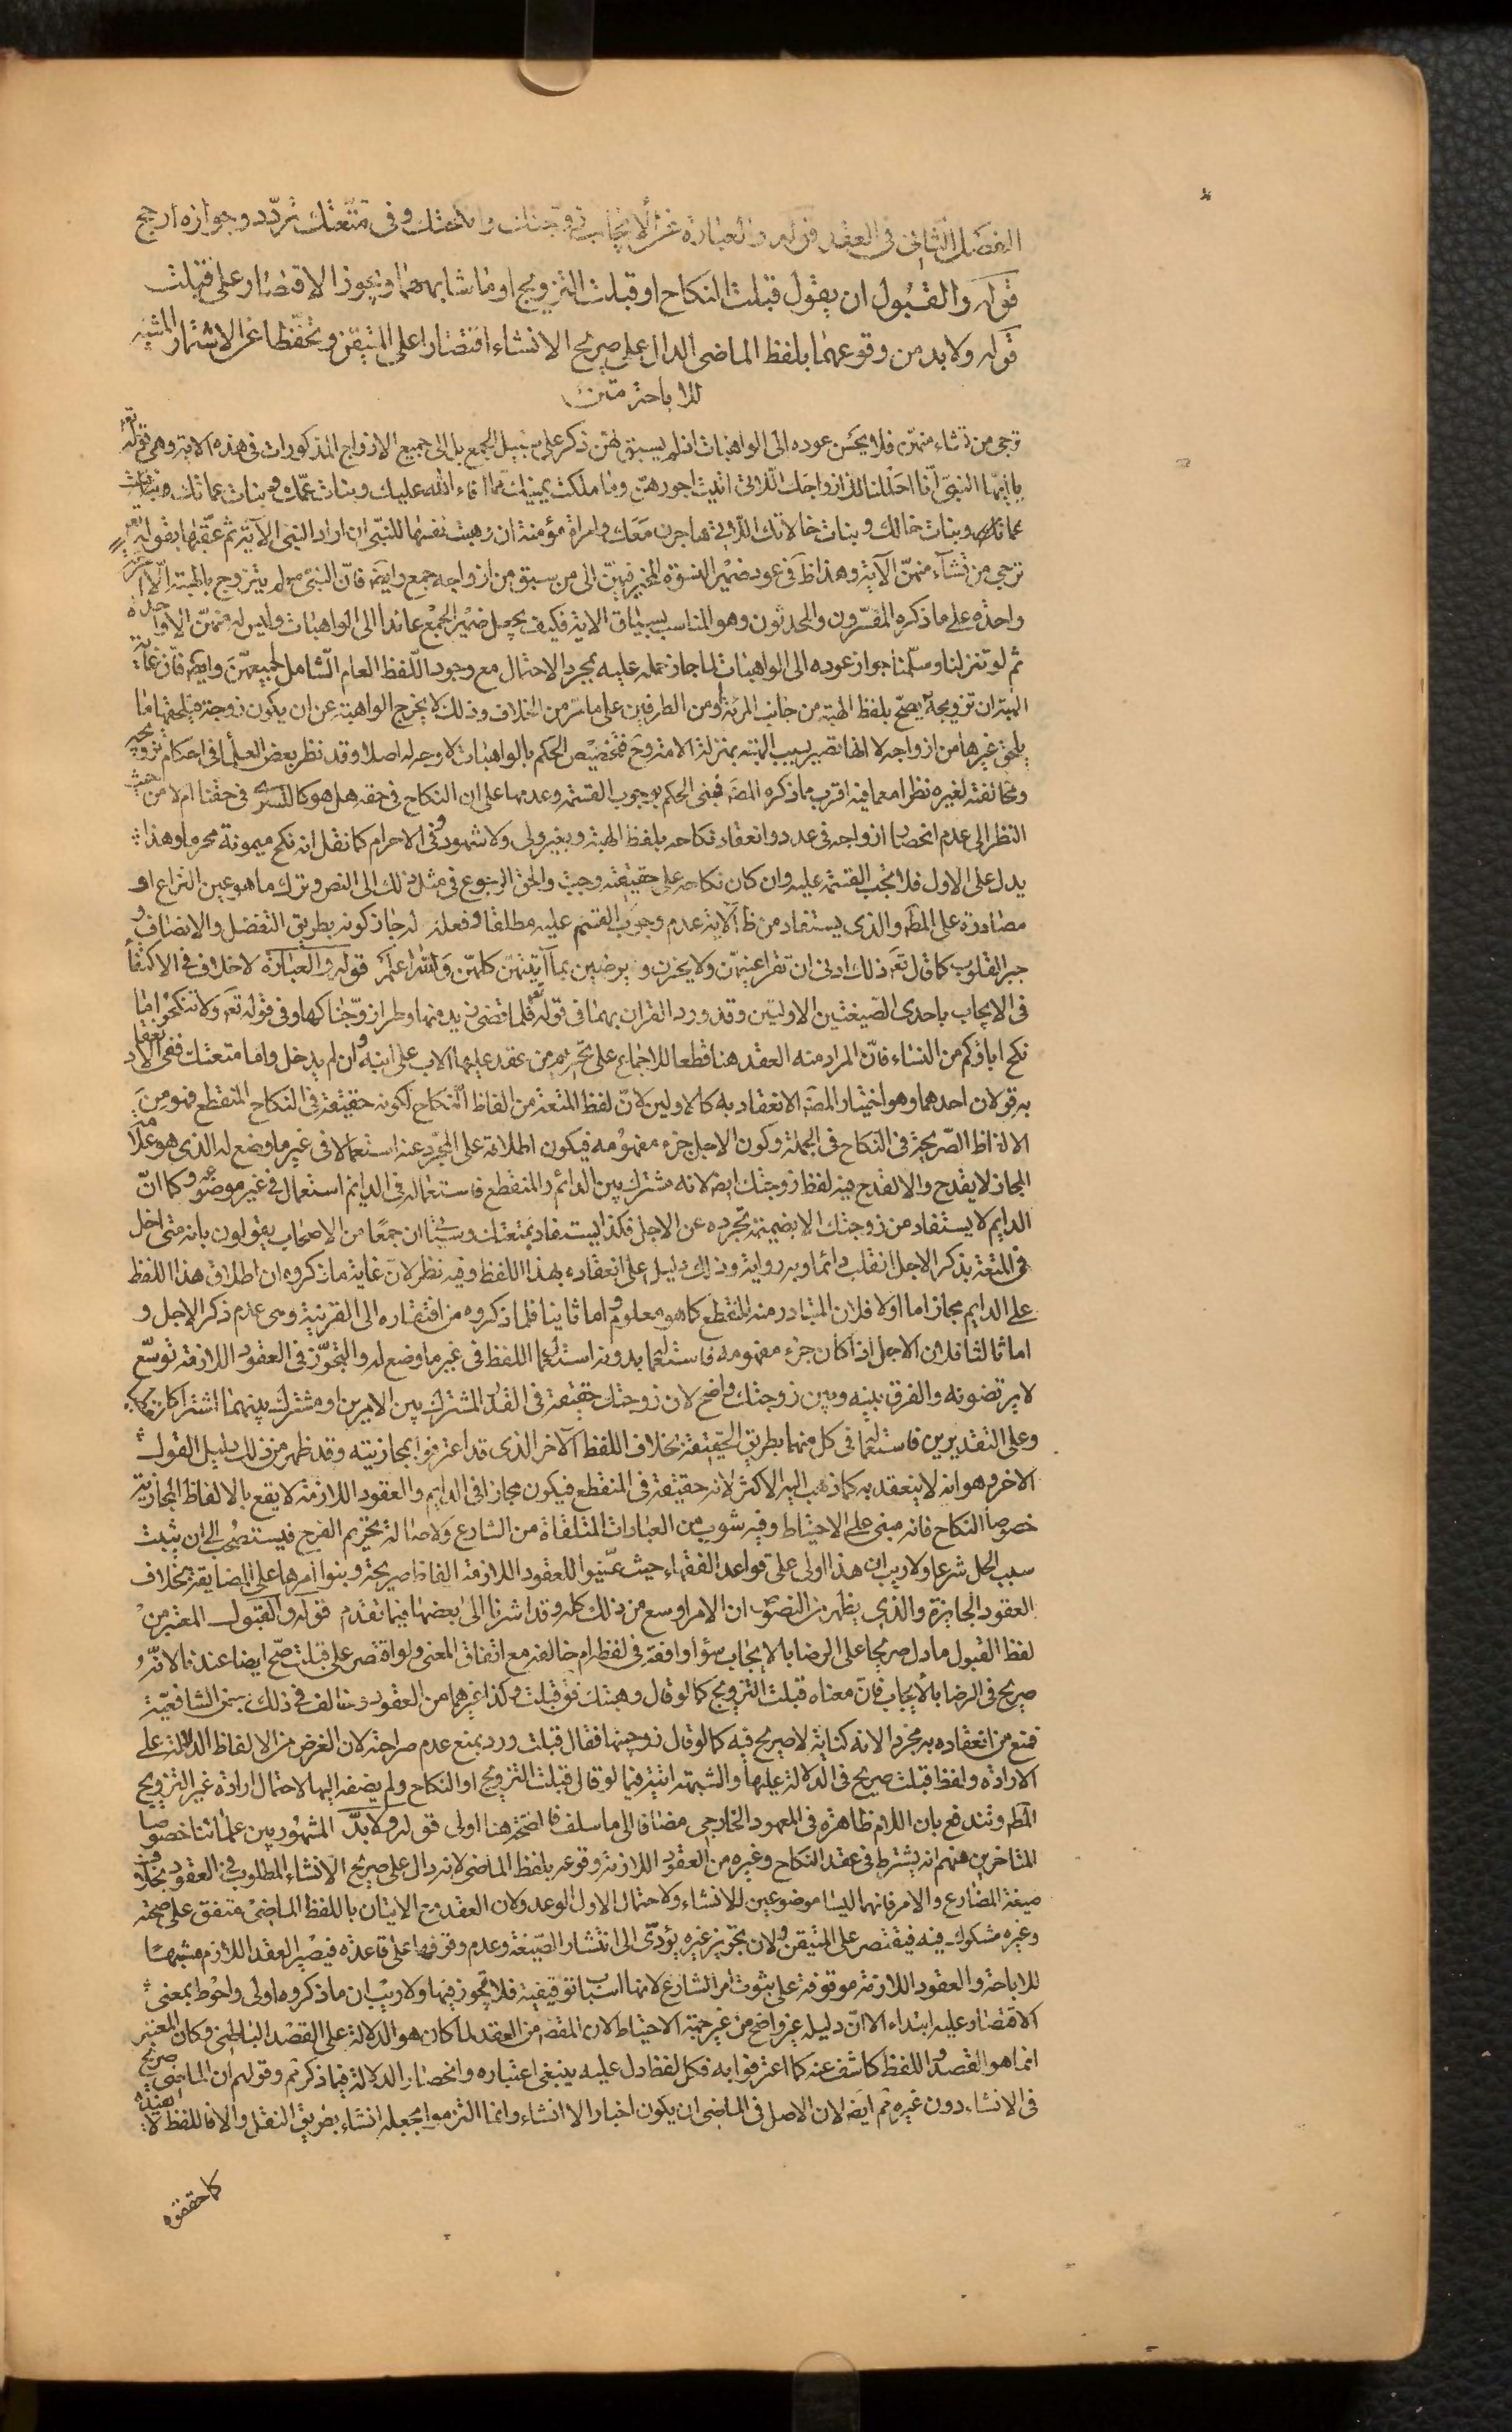 الفصل الثانى فى العقد قوله والعبارة عن الايجاب زوجتك وانكحتك وفى متعتك تردد وجوازه ارجح
قوله والقبول ان يقول قبلت النكاح او قبلت التزويج او ما شابههما ويجوز الاقتصار على قبلت
قوله ولا بد من وقوعهما بلفظ الماضى الدال على صريح الانشاء اقتصارا على المتيقن وتحفظا عن الاشتمار المشبه
للاباحة متن
ترجى من تشاء منهن فلا يحسن عوده الى الواهبات اذ لم يسبق لهن ذكر على سبيل الجمع بل الى جميع الازواج المذكورات فى هذه الاية وهى قوله تع
يا ايها النبى انا احللنا لك ازواجك اللاتى اتيت اجورهن وما ملكت يمينك مما افاء الله عليك وبنات عمك وبنات عماتك وبنات
خالك وبنات خالاتك اللاتى هاجرن معك وامراة مؤمنة ان وهبت نفسها للنبى ان اراد النبى الآية ثم عقبها بقوله تع
ترجى من تشآء منهن الآية وهذا ظ فى عود ضمير النسوة المخير فيهن الى من سبق من ازواجه جمع وايضا فان النبى ص لم يتزوج بالهبة الا امراة
واحدة على ما ذكره المفسرون والمحدثون وهو المناسب لسياق الاية فكيف يجعل ضمير الجمع عائدا الى الواهبات وليس له منهن الا واحدة
ثم لو تنزلنا وسلمنا جواز عوده الى الواهبات لما جاز حمله عليه بمجرد الاحتمال مع وجود اللفظ العام الشامل لجميعهن وايضا فان غاية
الهبة ان تزويجه يصح بلفظ الهبة من جانب المرئة او من الطرفين على ما مر من الخلاف وذلك لا يخرج الواهبة عن ان يكون زوجة فيلحقها ما
يلحق غيرها من ازواجه لا انها تصير بسبب الهبة بمنزلة الامة وح فتخصيص الحكم بالواهبات لا وجه له اصلا وقد نظر بعض العلمآ فى احكام تزويجه
ومخالفته لغيره نظرا معما فيه اقرب مما ذكره المص فبنى الحكم بوجوب القسمة وعدمها على ان النكاح فى حقه هل هو كالتسرى فى حقنا ام لا من حيث
النظر الى عدم انحصار ازواجه فى عدد وانعقاد نكاحه بلفظ الهبة وبغير ولى ولا شهود وفى الاحرام كما نقل انه نكح ميمونة محرما وهذا
يدل على الاول فلا يجب القسمة عليه وان كان نكاحه على حقيقته وجبت والحق الرجوع فى مثل ذلك الى النص وترك ما هو عين النزاع او
مصادرة على المط والذى يستفاد من ظ الآية عدم وجوب القسم عليه مطلقا وفعله له جاز كونه بطريق التفضل والانصاف و
جبر القلوب كما قال تع ذلك ادنى ان تقر اعينهن ولا يحزن ويرضين بما آتيتهن كلهن والله اعلم قوله والعبارة لا خلاف فى الاكتفآ
فى الايجاب باحدى الصيغتين الاوليين وقد ورد القران بهما فى قوله تع فلما قضى زيد منها وطرا زوجناكها وفى قوله تع ولا تنكحوا ما
نكح اباؤكم من النساء فان المراد منه العقد هنا قطعا للاجماع على تحريم من عقد عليها الاب على ابنه وان لم يدخل واما متعتك ففى الانعقاد
به قولان احدهما وهو اختيار المص الانعقاد به كالاولين لان لفظ المتعة من الفاظ النكاح لكونه حقيقة فى النكاح المنقطع فهو من
الالفاظ الصريحة فى النكاح فى الجملة وكون الاجل جزء مفهومه فيكون اطلاقه على المجرد عنه استعمالا فى غير ما وضع له الذى هو علامة
المجاز لا يقدح والا لقدح فى لفظ زوجتك ايضا لانه مشترك بين الدائم والمنقطع فاستعماله فى الدائم استعمال فى غير موضوعه وكما ان
الدايم لا يستفاد من زوجتك الا بضميمة تجرده عن الاجل فكذا يستفاد بمتعتك وسيأتى ان جمعا من الاصحاب يقولون بانه متى اخل
فى المتعة بذكر الاجل انقلب دائما وبه رواية وذلك دليل على انعقاده بهذا اللفظ وفيه نظر لان غاية ما ذكروه ان اطلاق هذا اللفظ
على الدايم مجاز اما اولا فلان المتبادر منه المنقطع كما هو معلوم واما ثانيا فلما ذكروه من افتقاره الى القرينة وهى عدم ذكر الاجل و
اما ثالثا فلان الاجل اذا كان جزء مفهومه فاستعماله بدونه استعمال اللفظ فى غير ما وضع له والتجوز فى العقود اللازمة توسع
لا يرتضونه والفرق بينه وبين زوجتك واضح لان زوجتك حقيقة فى القدر المشترك بين الامرين او مشترك بينهما اشتراكا
وعلى التقديرين فاستعماله فى كل منهما بطريق الحقيقة بخلاف اللفظ الآخر الذى قد اعترفوا بمجازيته وقد ظهر من ذلك دليل القول
الاخر وهو انه لا ينعقد به كما ذهب اليه الاكثر لانه حقيقة فى المنقطع فيكون مجازا فى الدايم والعقود اللازمة لا يقع بالالفاظ المجازية
خصوصا النكاح فانه مبنى على الاحتياط وفيه شوب من العبادات المتلقاة من الشارع ولاصالة تحريم الفرج فيستصحب الى ان يثبت
سبب الحل شرعا ولا ريب ان هذا اولى على قواعد الفقهاء حيث عينوا للعقود اللازمة الفاظا صريحة وبنوا امرها على المضايقة بخلاف
العقود الجايزة والذى يظهر من النصوص ان الامر اوسع من ذلك كله وقد اشرنا الى بعضها فيما تقدم قوله والقبول المعتبر من
لفظ القبول ما دل صريحا على الرضا بالايجاب سوآ وافقه فى لفظه ام خالفه مع اتفاق المعنى ولو اقتصر على قبلت صح ايضا عندنا لانه
صريح فى الرضا بالايجاب فان معناه قبلت التزويج كما لو قال وهبتك فق قبلت وكذا غيرهما من العقود وخالف فى ذلك بعض الشافعية
فمنع من انعقاده به مجردا لانه كناية لا صريح فيه كما لو قال زوجنيها فقال قبلت ورد بمنع عدم صراحته لان الغرض من الالفاظ الدلالة على
الارادة ولفظ قبلت صريح فى الدلالة عليها والشبهة اتية فيما لو قال قبلت التزويج او النكاح ولم يضفه اليها لاحتمال ارادة غير التزويج
المط وتندفع بان اللام ظاهرة فى المعهود الخارجى مضافا الى ما سلف فاتضحه هنا اولى قوله ولا بد المشهور بين علمائنا خصوصا
المتاخرين منهم انه يشترط فى عقد النكاح وغيره من العقود اللازمة وقوعه بلفظ الماضى لانه دال على صريح الانشاء المطلوب فى العقود بخلاف
صيغة المضارع والامر فانهما ليسا موضوعين للانشاء ولاحتمال الاول الوعد ولان العقد مع الاتيان باللفظ الماضى متفق على صحته
وغيره مشكوك فيه فيقتصر على المتيقن ولان تجويز غيره يؤدى الى انتشار الصيغة وعدم وقوفها على قاعدة فيصير العقد اللازم مشبها
للاباحة والعقود اللازمة موقوفة على ثبوت امر الشارع لانها اسباب توقيفية فلا تجوز فيها ولا ريب ان ما ذكروه اولى واحوط بمعنى
الاقتصار عليه ابتداء الا ان دليله غير واضح من غير جهة الاحتياط لان المقص من العقد لما كان هو الدلالة على القصد الباطنى وكان المعتبر
انما هو القصد واللفظ كاشف عنه كما اعترفوا به فكل لفظ دل عليه ينبغى اعتباره وانحصار الدلالة فيما ذكر ثم وقولهم ان الماضى صريح
فى الانشاء دون غيره ثم ايضا لان الاصل فى الماضى ان يكون اخبارا لا انشاء وانما التزموا بجعله انشاء بطريق النقل والا فاللفظ لا يفيده
كما حققوه